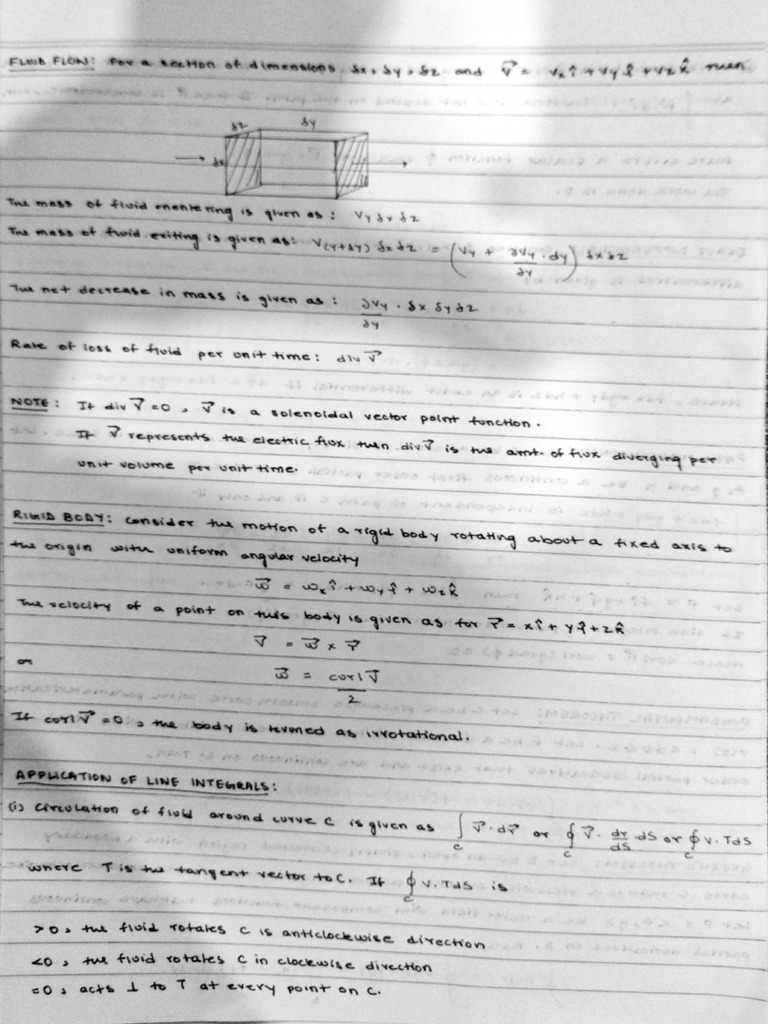 FLUID FLOW: For a section of dimensions δx, δy, δz and v⃗ = vxî + vyĵ + vzk̂ then
δz δy
δx
The mass of fluid enentering is given as: Vy δx δz
The mass of fluid exiting is given as: V(y+δy) δx δz = (Vy + ∂Vy/∂y · dy) δx δz
The net decrease in mass is given as: ∂Vy/∂y · δx δy δz
Rate of loss of fluid per unit time: div V⃗
NOTE: If div V⃗ = 0, V⃗ is a solenoidal vector point function.
If V⃗ represents the electric flux then div V⃗ is the amt. of flux diverging per
unit volume per unit time.
RIGID BODY: Consider the motion of a rigid body rotating about a fixed axis to
the origin with uniform angular velocity
ω⃗ = ωxî + ωyĵ + ωzk̂
The velocity of a point on this body is given as for r⃗ = xî + yĵ + zk̂
V⃗ = ω⃗ × r⃗
or
ω⃗ = curl V⃗ / 2
If curl V⃗ = 0, the body is termed as irrotational.
APPLICATION OF LINE INTEGRALS:
(i) Circulation of fluid around curve C is given as ∫C V⃗·dr⃗ or ∮C V⃗· dr/dS dS or ∮C V.TdS
where T is the tangent vector to C. If ∮C V.TdS is
>0, the fluid rotates C is anticlockwise direction
<0, the fluid rotates C in clockwise direction
=0, acts ⊥ to T at every point on C.